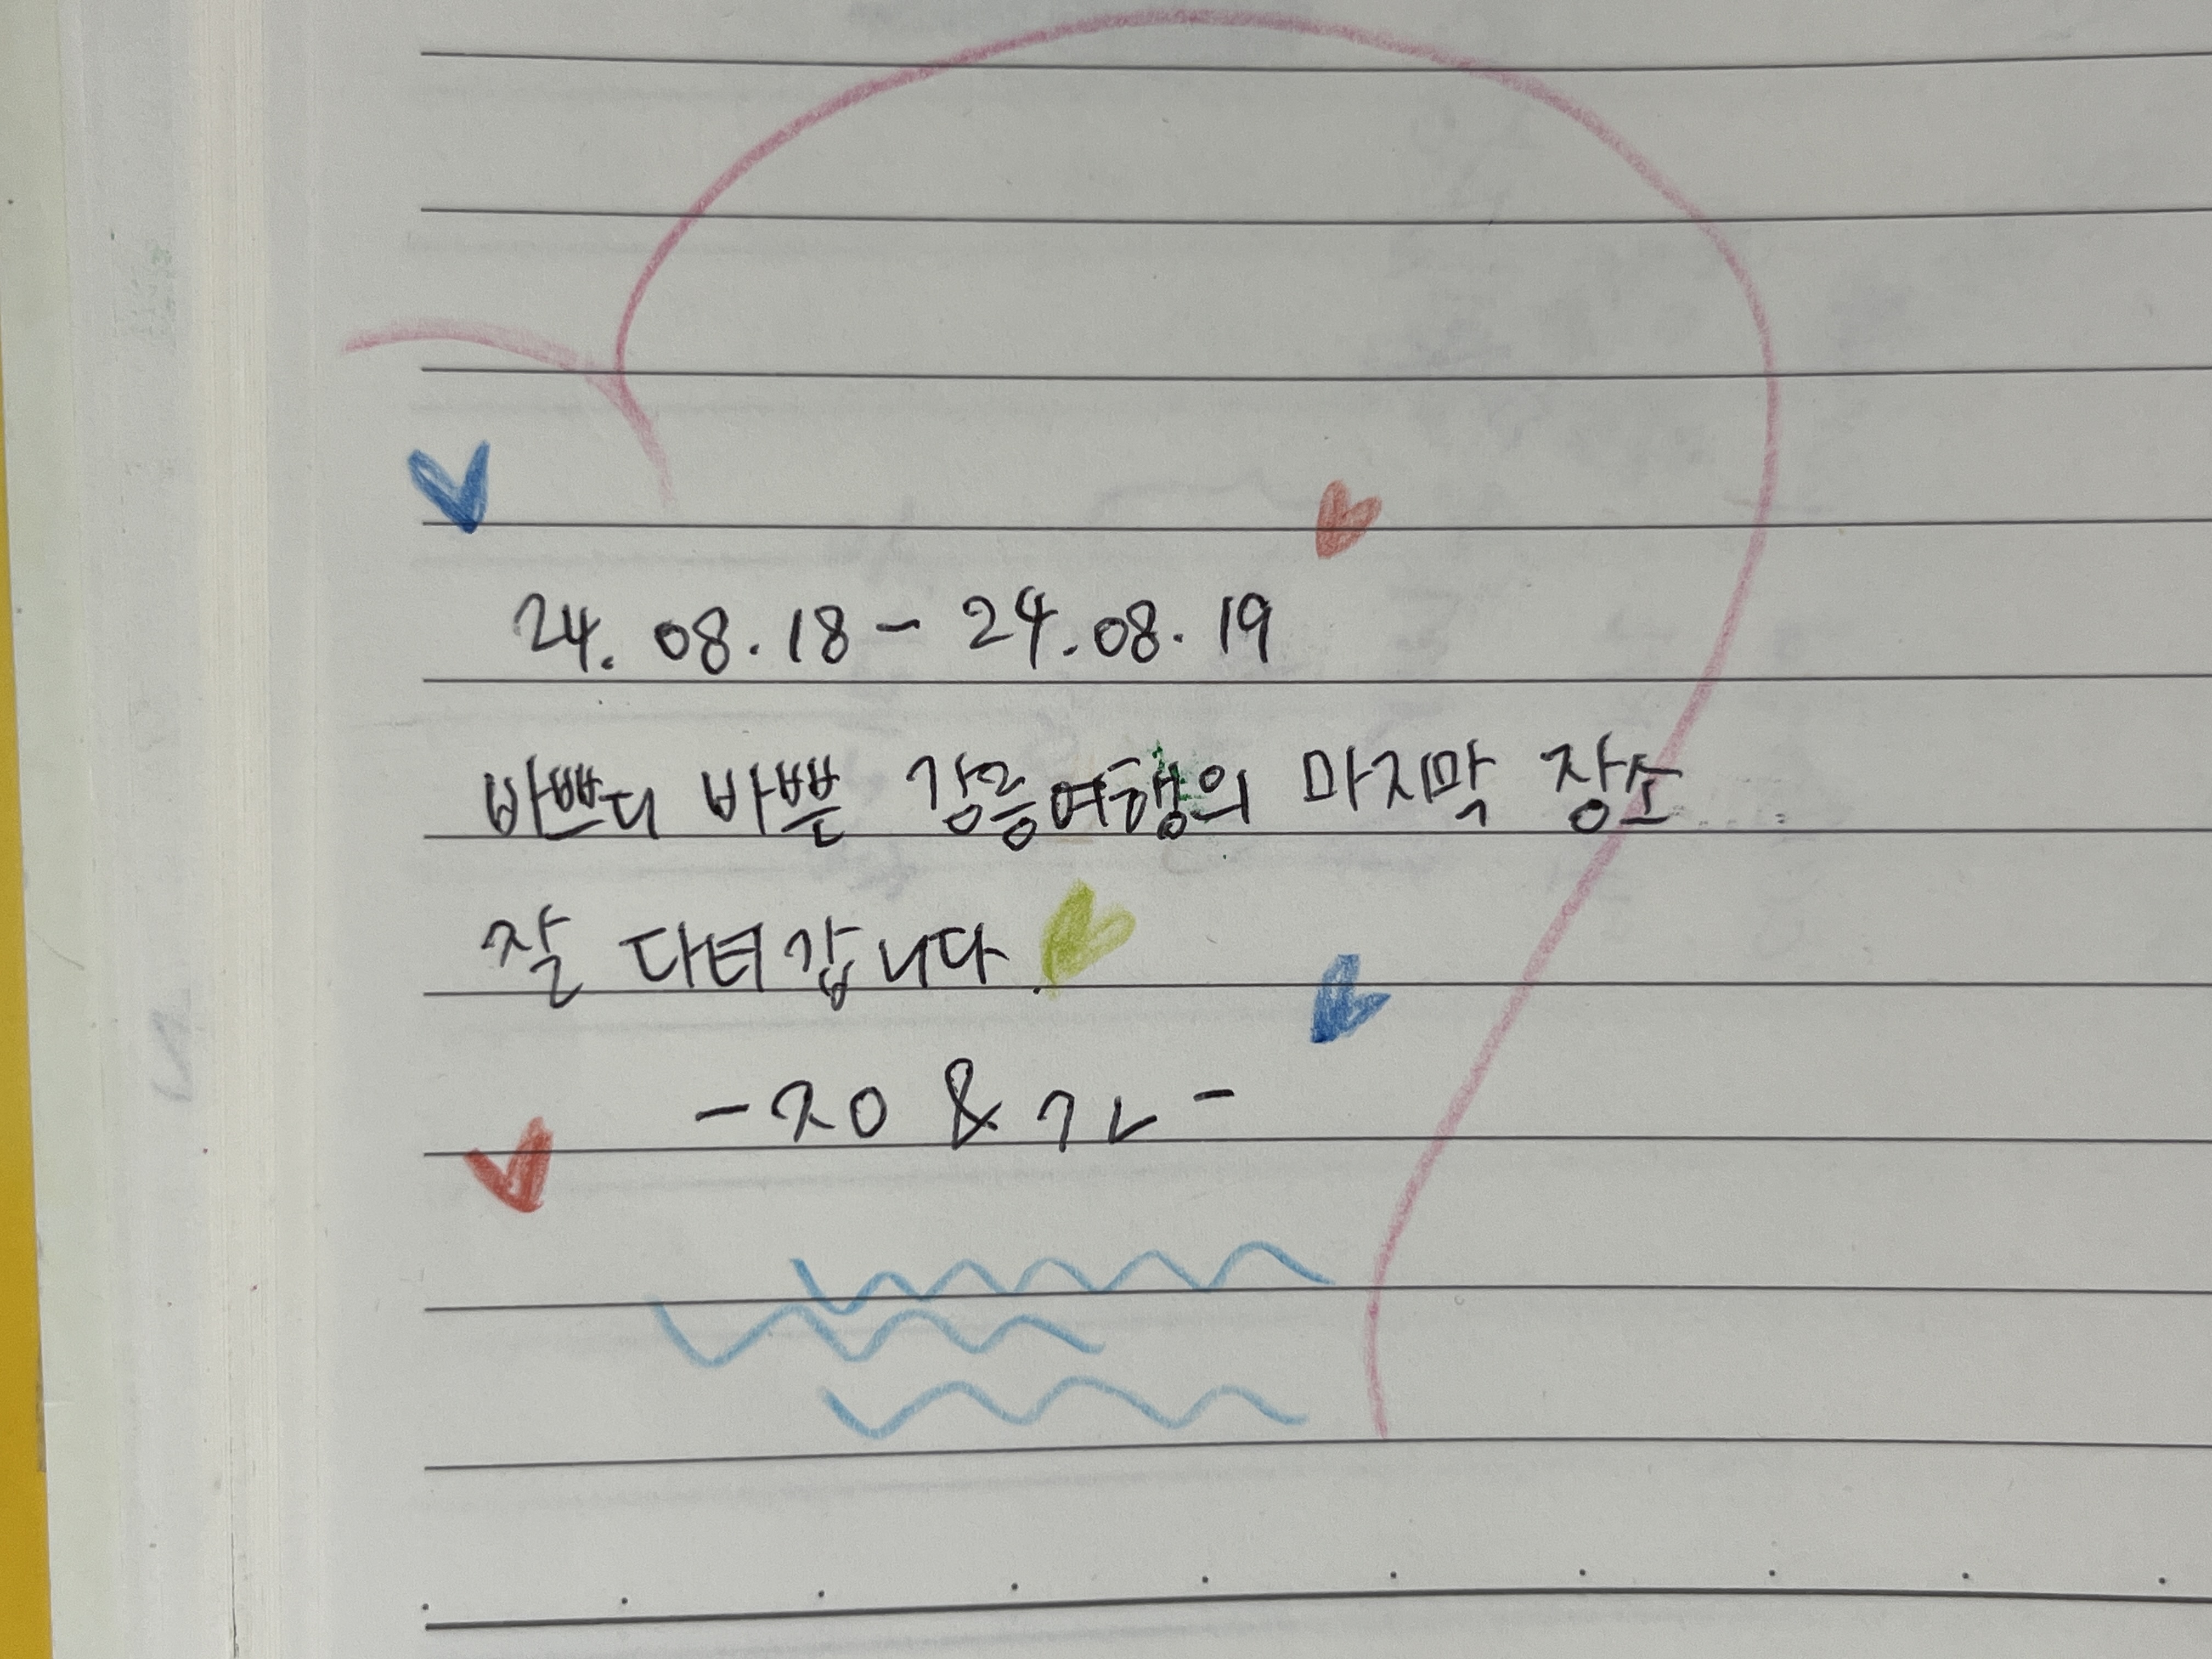 24. 08. 18 - 24. 08. 19
바쁘디 바쁜 강릉여행의 마지막 장소
잘 다녀갑니다.
- ㅈㅇ & ㄱㄴ -